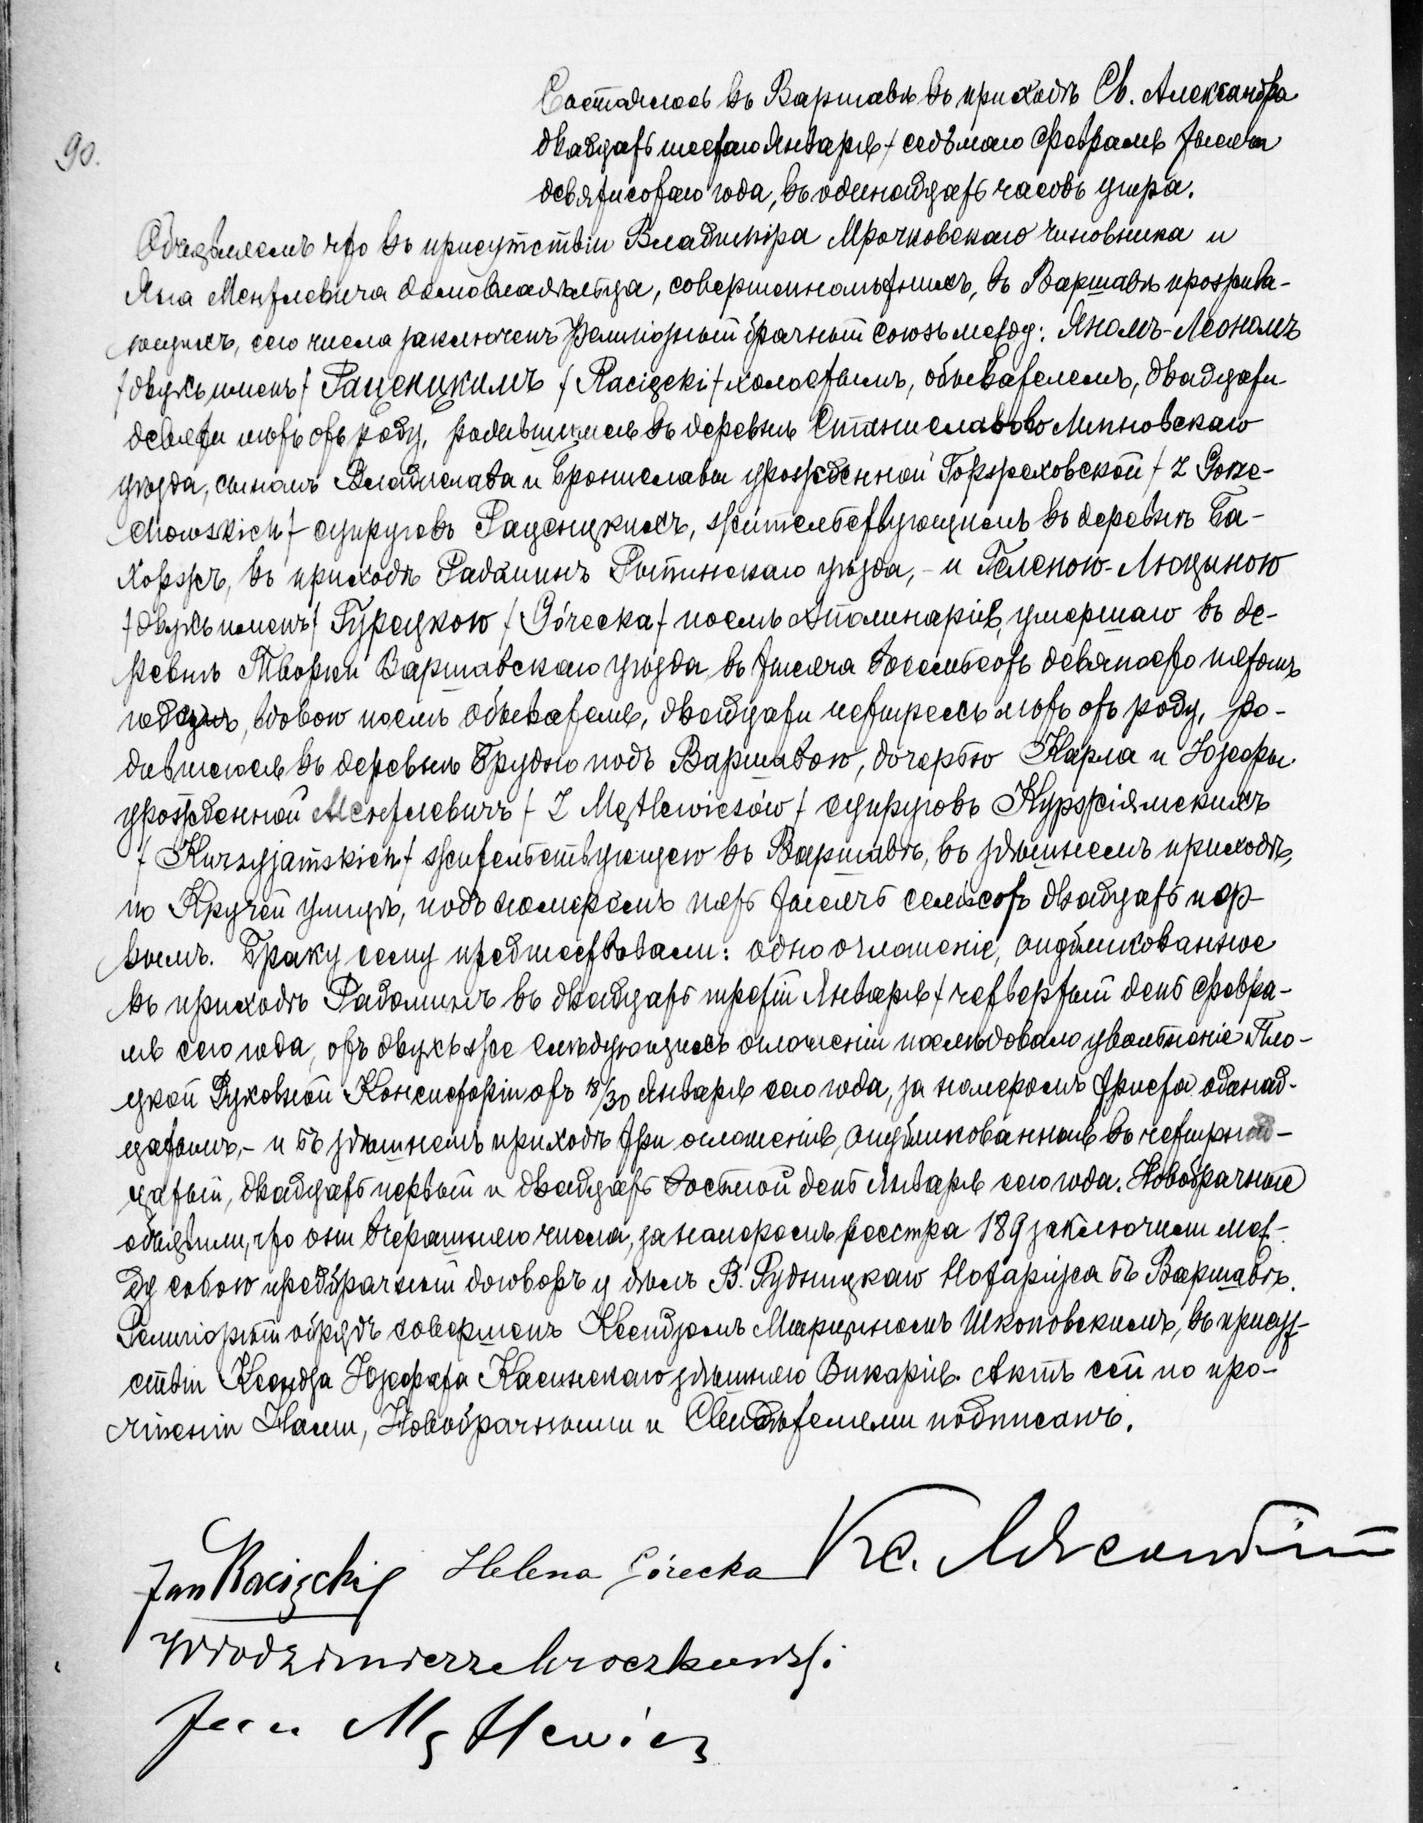 90.
Состоялось въ Варшавѣ въ приходѣ Св. Александра
двадцать шестаго Января / седьмаго Февраля тысяча
девятисотаго года, въ одиннадцать часовъ утра.
Объявляемъ что въ присутствіи Владиміра Мрочковскаго чиновника и
Яна Ментлевича домовладѣльца, совершеннолѣтнихъ, въ Варшавѣ прожива-
ющихъ, сего числа заключенъ религіозный брачный союзъ между: Яномъ-Леономъ
/двухъ именъ/ Раценцкимъ /Racięcki/ холостымъ, обывателемъ, двадцати
девяти лѣтъ отъ роду, родившимся въ деревнѣ Станиславово Липновскаго
уѣзда, сыномъ Владислава и Брониславы урожденной Горжеховской / Z Gorze-
chowskich / супруговъ Раценцкихъ, жительствующимъ въ деревнѣ Ба-
хоржъ, въ приходѣ Радоминъ Рыпинскаго уѣзда, - и Геленою-Люциною
/двухъ именъ/ Гурецкою /Górecka/ послѣ Аполинарія, умершаго въ де-
ревнѣ Творки Варшавскаго уѣзда въ тысяча восемьсотъ девяносто пятомъ
году, вдовою послѣ обывателя, двадцати четырехъ лѣтъ отъ роду, ро-
дившеюся въ деревнѣ Брудно подъ Варшавою, дочерью Карла и Юзефы
урожденной Ментлевичъ / Z Mętlewiczów / супруговъ Куржіямскихъ
/ Kurzyjamskich / жительствующею въ Варшавѣ, въ здѣшнемъ приходѣ,
по Кручей улицѣ, подъ номеромъ пять тысячъ семьсотъ двадцать пер-
вымъ. Браку сему предшествовали: одно оглашеніе, опубликованное
въ приходѣ Радоминъ въ двадцать третій Января / четвертый день Февра-
ля сего года, отъ двухъ же слѣдующихъ оглашеній послѣдовало увольненіе Пло-
цкой Духовной Консисторіи отъ 18/30 Января сего года, за номеромъ триста одинад-
цатымъ, - и въ здѣшнемъ приходѣ три оглашенія, опубликованныя въ четырнад-
цатый, двадцать первый и двадцать восьмой день Января сего года. Новобрачные
объявили, что они вчерашняго числа, за номеромъ реестра 189 заключили меж-
ду собою предбрачный договоръ у дѣлъ В. Рудницкаго Нотаріуса въ Варшавѣ.
Религіозный обрядъ совершенъ Ксендзомъ Марцыномъ Шкоповскимъ, въ присут-
ствіи Ксендза Юзефата Касинскаго здѣшняго Викарія. Актъ сей по про-
чтеніи Нами, Новобрачными и Свидѣтелями подписанъ.
Jan Racięcki Helena Górecka Кс.
Włodzimierz Mroczkowski.
Jan Mętlewicz